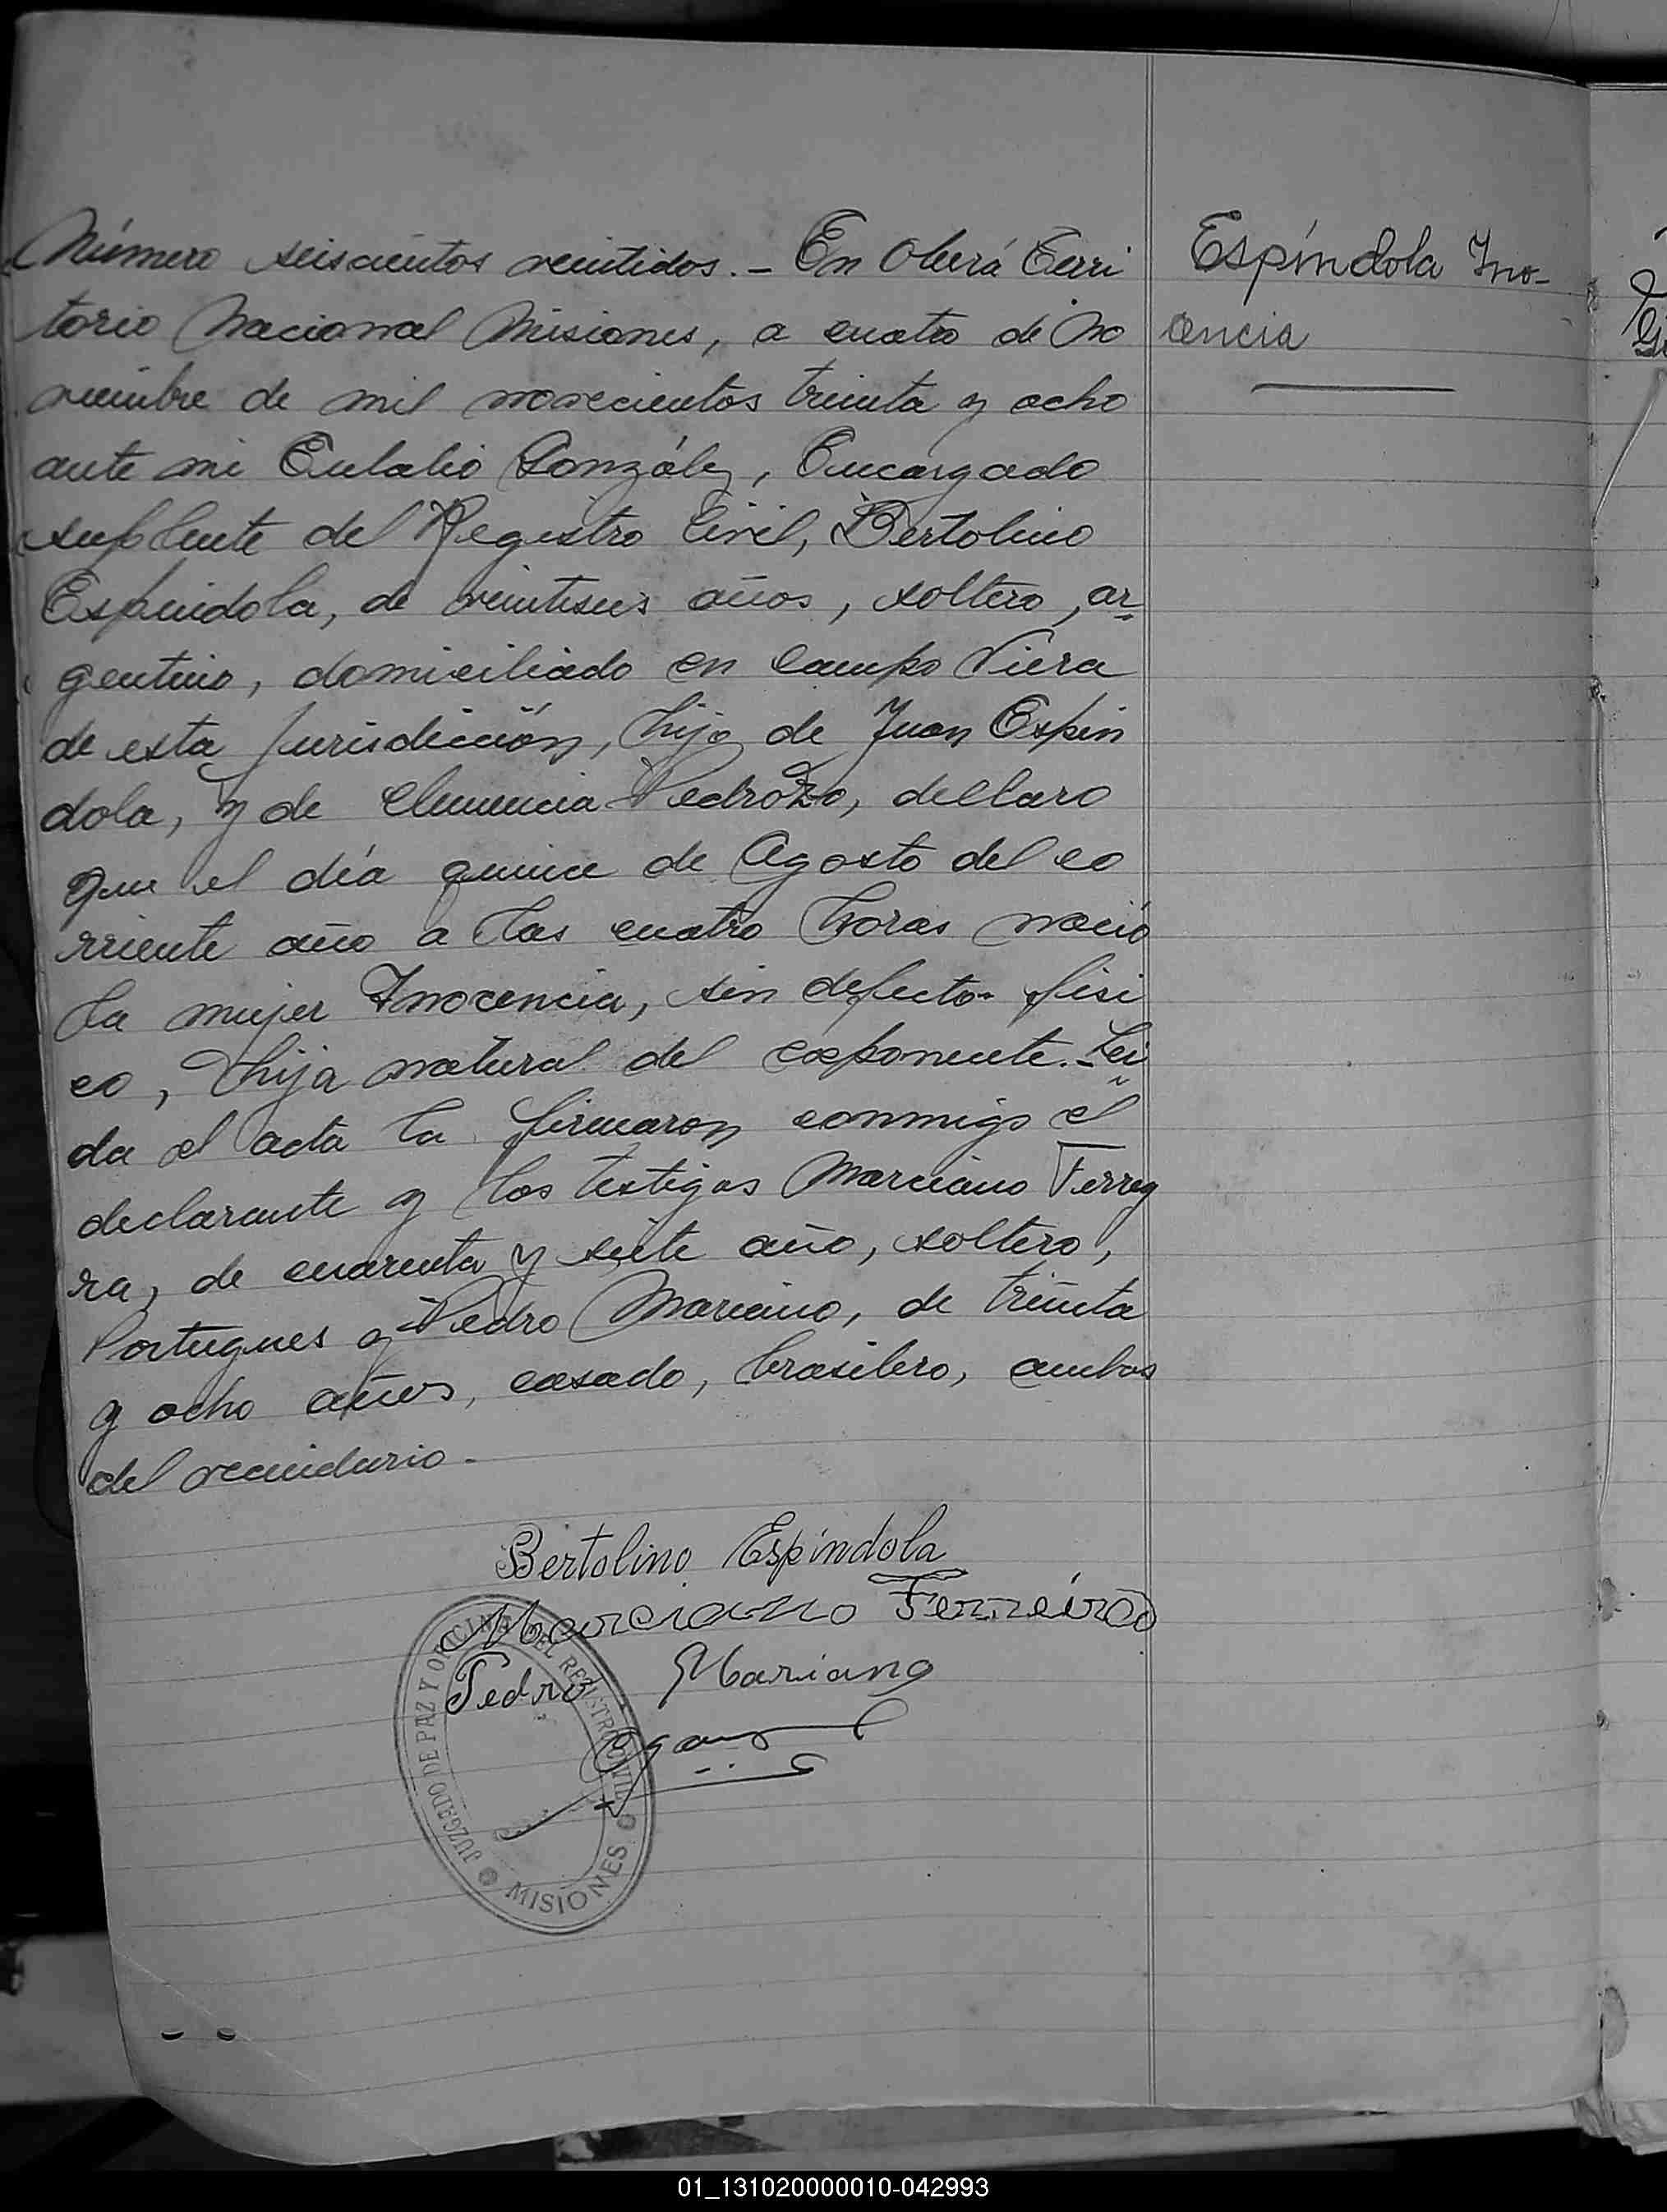 Número seiscientos veintidos. - En Oberá Terri
torio Nacional Misiones, a cuatro de No
viembre de mil novecientos treinta y ocho
ante mi Eulalio González, Encargado
suplente del Registro Civil, Bertolino
Espindola, de veintiseis años, soltero, ar-
gentino, domiciliado en Campo Viera
de esta Jurisdicción, hijo de Juan Espin
dola, y de Clemencia Pedrozo, declaro
que el día quince de Agosto del co
rriente año a las cuatro horas nació
la mujer Inocencia, sin defecto fisi
co, hija natural del exponente. - Lei
da el acta la firmaron conmigo el
declarante y los testigos Marciano Ferrey
ra, de cuarenta y siete año, soltero,
Portugues y Pedro Mariano, de treinta
y ocho años, casado, brasilero, ambos
del vecindario. -
Espíndola Ino-
cencia
Bertolino Espíndola
Marciano Ferreirão
Pedro Mariano
JUZGADO DE PAZ Y OFICINA DEL REGISTRO CIVIL
MISIONES
01_131020000010-042993